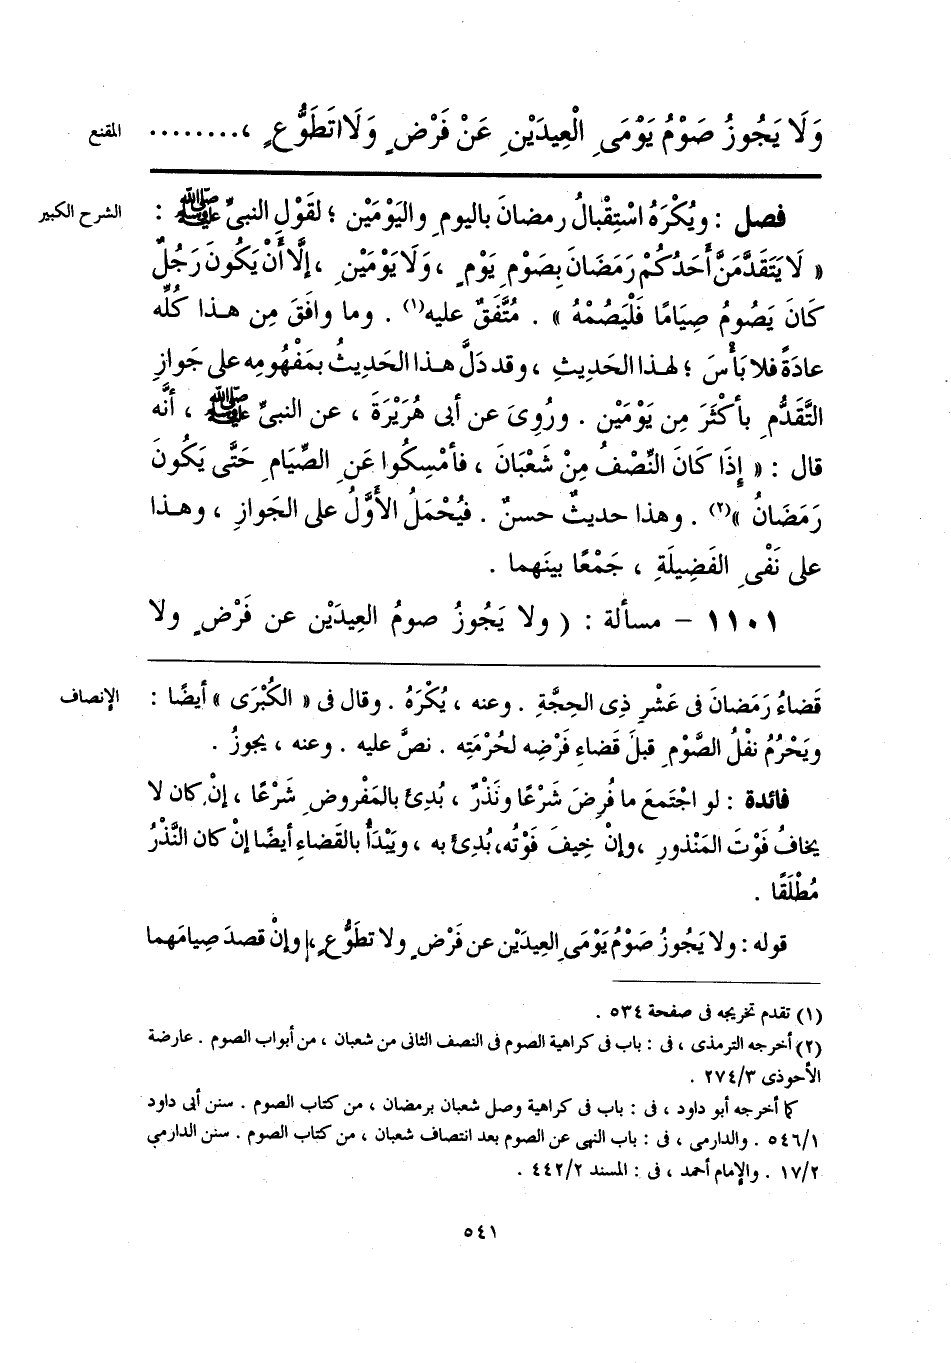 المقنع
وَلَا يَجُوزُ صَوْمُ يَوْمَىِ الْعِيدَيْنِ عَنْ فَرْضٍ وَلَا تَطَوُّعٍ ، ........
الشرح الكبير
فصل : ويُكْرَهُ اسْتِقْبالُ رمضانَ باليومِ واليَوْمَيْن ؛ لقَوْلِ النبىِّ ﷺ :
« لَا يَتَقَدَّمَنَّ أَحَدُكُمْ رَمَضَانَ بِصَوْمِ يَوْمٍ ، وَلَا يَوْمَيْنِ ، إلَّا أَنْ يَكُونَ رَجُلٌ
كَانَ يَصُومُ صِيَامًا فَلْيَصُمْهُ » . مُتَّفَقٌ عليه(١) . وما وافَقَ مِن هذا كُلِّه
عادَةً فلا بَأْسَ ؛ لهذا الحَدِيثِ ، وقد دَلَّ هذا الحَدِيثُ بمَفْهُومِه على جَوازِ
التَّقَدُّمِ بأكْثَرَ مِن يَوْمَيْن . ورُوِىَ عن أبى هُرَيْرَةَ ، عن النبىِّ ﷺ ، أنَّه
قال : « إِذَا كَانَ النِّصْفُ مِنْ شَعْبَانَ ، فَأمْسِكُوا عَنِ الصِّيَامِ حَتَّى يَكُونَ
رَمَضَانُ »(٢) . وهذا حديثٌ حسنٌ . فيُحْمَلُ الأَوَّلُ على الجَوازِ ، وهذا
على نَفْىِ الفَضِيلَةِ ، جَمْعًا بينَهما .
١١٠١ – مسألة : ( ولا يَجُوزُ صومُ العِيدَيْن عن فَرْضٍ ولا
الإنصاف
قَضاءُ رَمَضانَ فى عَشْرِ ذِى الحِجَّةِ . وعنه ، يُكْرَهُ . وقال فى « الكُبْرَى » أيضًا :
ويَحْرُمُ نفْلُ الصَّوْمِ قبلَ قَضاءِ فَرْضِه لحُرْمَتِه . نصَّ عليه . وعنه ، يجوزُ .
فائدة : لو اجْتَمعَ ما فُرِضَ شَرْعًا ونَذْرٌ ، بُدِئَ بالمَفْروضِ شَرْعًا ، إنْ كان لا
يخافُ فَوْتَ المَنْذورِ ، وإنْ خِيفَ فَوْتُه، بُدِئَ به ، ويَبْدَأُ بالقَضاءِ أيضًا إنْ كان النَّذْرُ
مُطْلَقًا .
قوله : ولا يَجُوزُ صَوْمُ يَوْمَىِ العِيدَيْن عن فَرْضٍ ولا تطَوُّعٍ ، وإنْ قصدَ صِيامَهما
(١) تقدم تخريجه فى صفحة ٥٣٤ .
(٢) أخرجه الترمذى ، فى : باب فى كراهية الصوم فى النصف الثانى من شعبان ، من أبواب الصوم . عارضة
الأحوذى ٢٧٤/٣ .
كما أخرجه أبو داود ، فى : باب فى كراهية وصل شعبان برمضان ، من كتاب الصوم . سنن أبى داود
٥٤٦/١ . والدارمى ، فى : باب النهى عن الصوم بعد انتصاف شعبان ، من كتاب الصوم . سنن الدارمي
١٧/٢ . والإمام أحمد ، فى : المسند ٤٤٢/٢ .
٥٤١